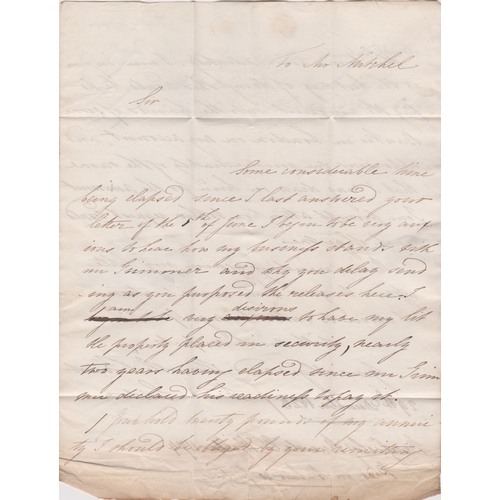 To Mr Mitchel
Sir
Some considerable time
being elapsed since I last answered your
letter of the 5th of June I begin to be very anx
ious to hear how my business stands with
mr Grimmer and why you delay send
ing as you purposed the releases here. I
am very desirous to have my lit
tle property placed in security, nearly
two years having elapsed since mr Grim
mer declared his readiness to pay it.
I you hold twenty pounds of my annui
ty I should be obliged by your remitting